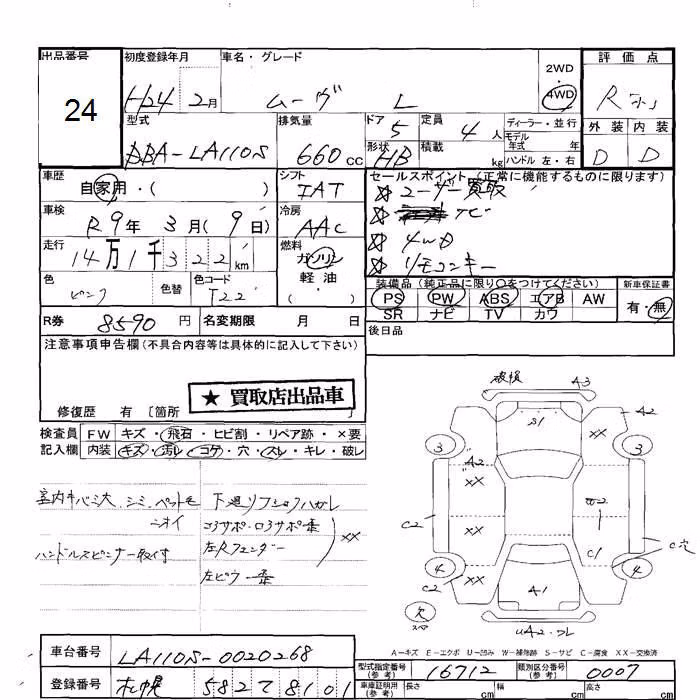 出品番号 初度登録年月 車名・グレード 2WD・4WD 評価点
24
H24 2月 ムーヴ L R
型式 排気量 ドア 定員 ディーラー・並行 外装 内装
DBA-LA110S 660cc 5 4人 モデル年式 年 D D
形状 HB 積載 kg ハンドル 左・右
車歴 シフト セールスポイント(正常に機能するものに限ります)
自家用・( ) IAT ☆ユーザー買取
車検 冷房 ☆ TV
R9年 3月(9日) AAC ☆4WD
走行 燃料 ☆リモコンキー
14万1千322km ガソリン
軽油
( )
色 色替 色コード 装備品(純正品に限り○をつけてください) 新車保証書
ピンク T22 PS PW ABS エアB AW 有・無
SR ナビ TV カワ
R券 8590円 名変期限 月 日 後日品
注意事項申告欄(不具合内容等は具体的に記入して下さい)
★ 買取店出品車
修復歴 有 〔箇所 〕
検査員 FW キズ・飛石・ヒビ割・リペア跡・×要
記入欄 内装 キズ・汚レ・コゲ・穴・スレ・キレ・破レ
室内キバミ大、シミ、ペットモ
ニオイ
ハンドルスピンナー取付
下廻リフショクハガレ
コアサポ・ロアサポ歪
左Rフェンダー
左ピラー歪
XX
破損 A3
S1 XX A2
3 3
A2
XX W2
C2 XX
C1 C穴
4 4
C2 XX A1
欠
スペア
UA2・ワレ
A−キズ E−エクボ U−凹み W−補修跡 S−サビ C−腐食 XX−交換済
車台番号 LA110S-0020268
型式指定番号(参考) 16712 類別区分番号(参考) 0007
登録番号 札幌 582 て 8101
車庫証明用(参考) 長さ cm 幅 cm 高さ cm